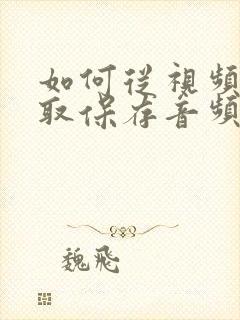 如何從視頻
取保存音頻
魏飛